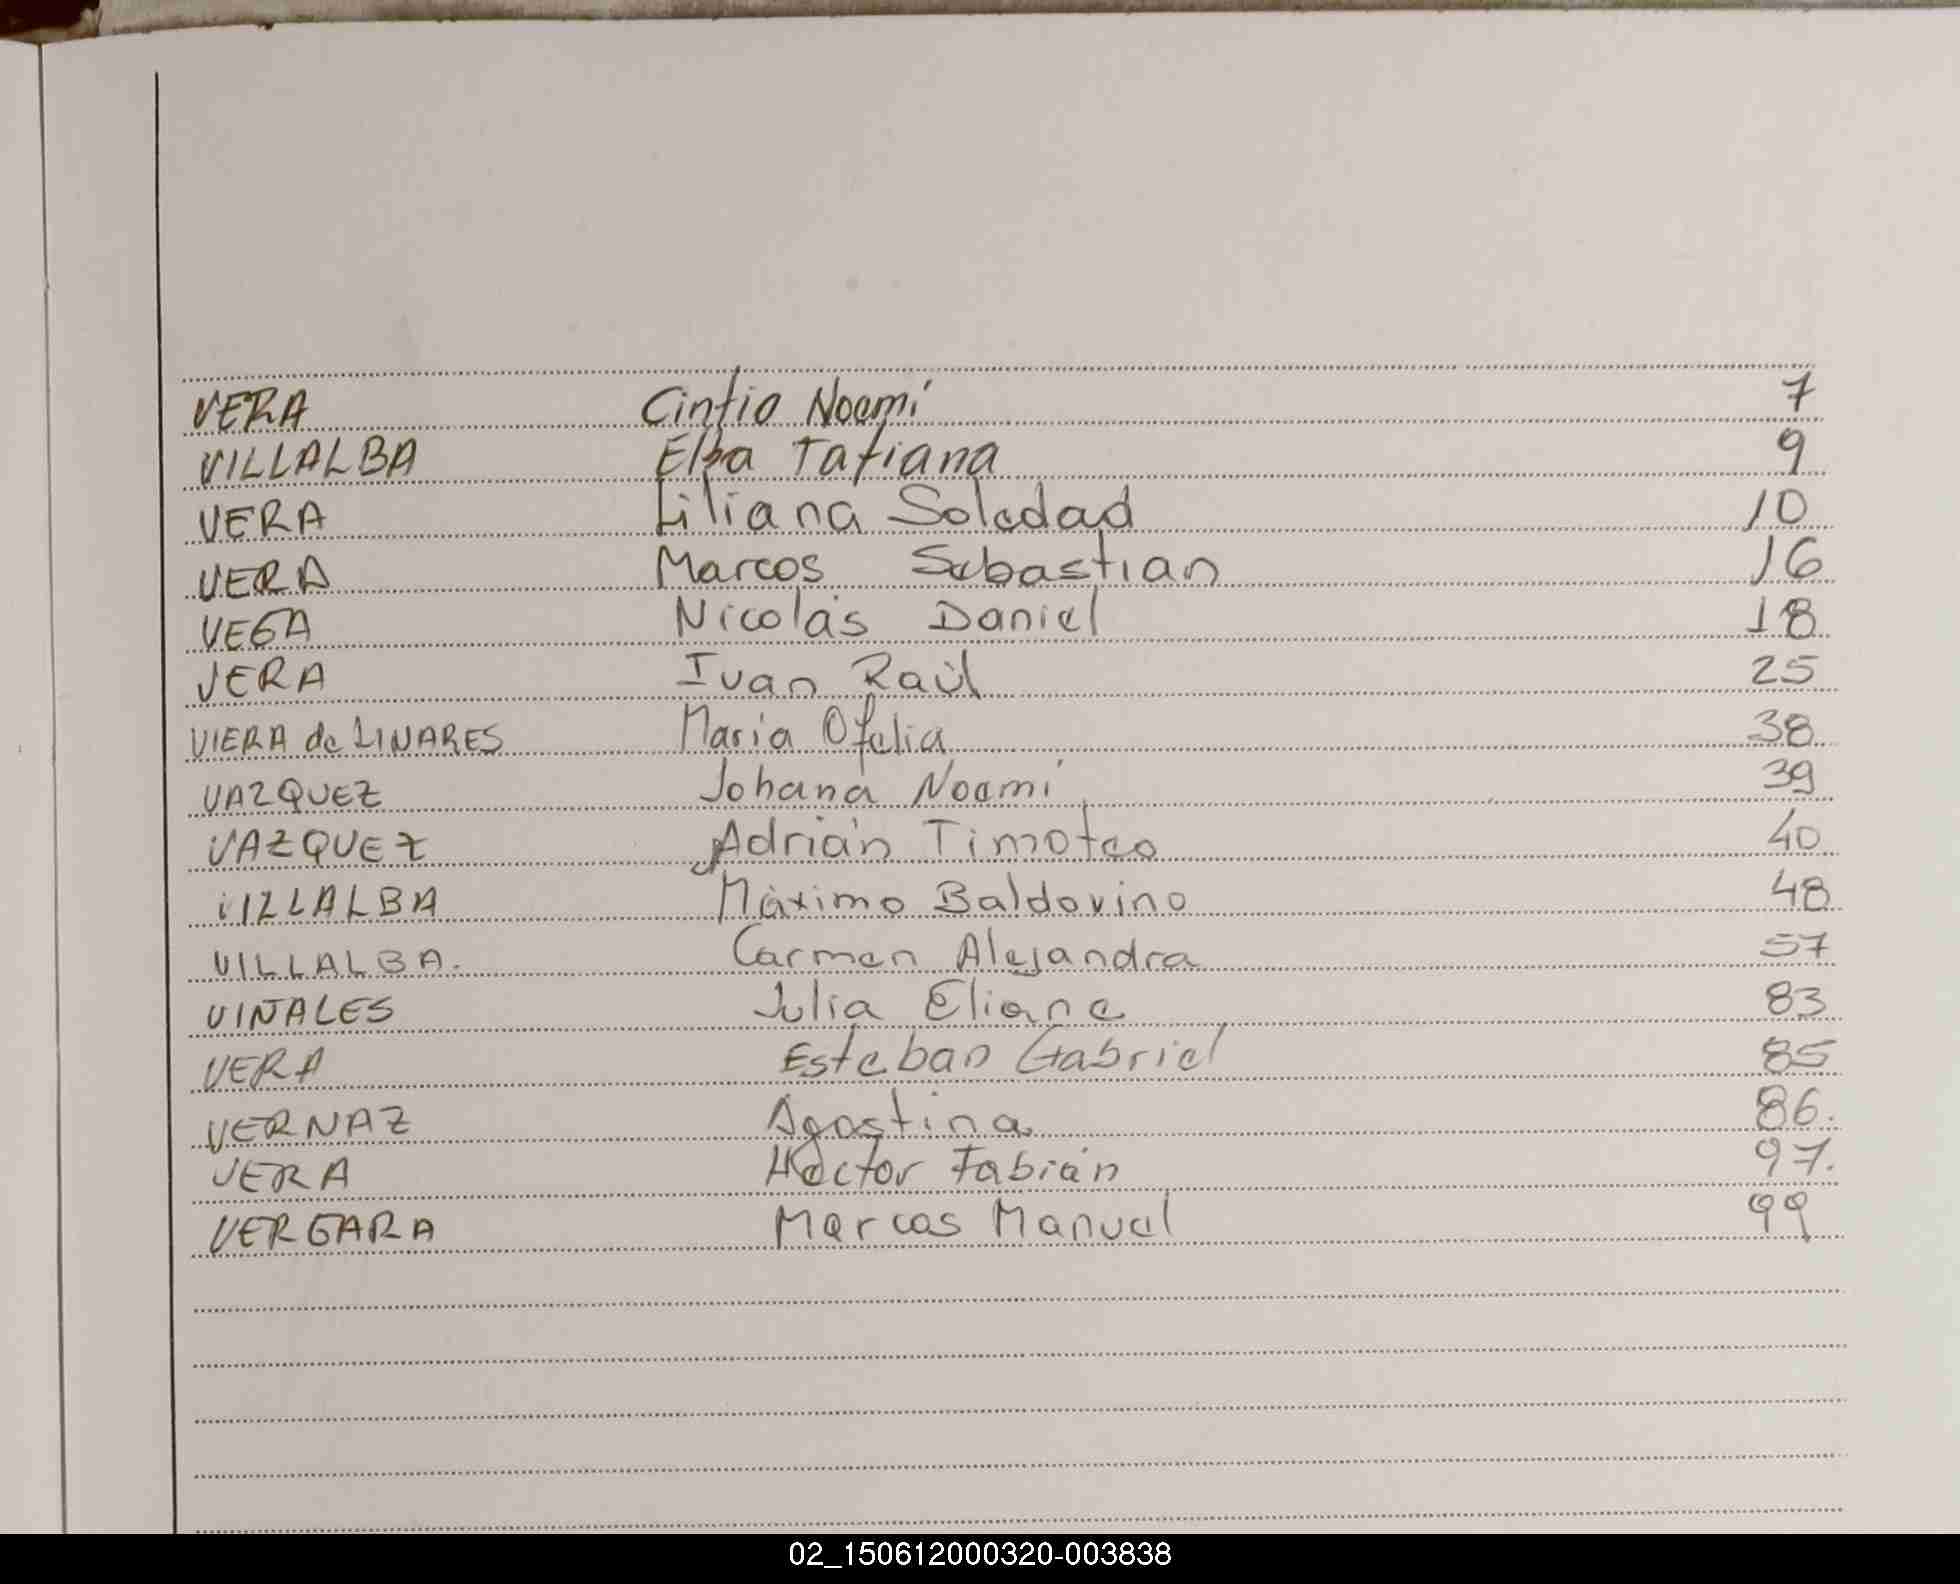 VERA Cintia Noemí 7
VILLALBA Elba Tatiana 9
VERA Liliana Soledad 10
VERA Marcos Sebastian 16
VEGA Nicolás Daniel 18
VERA Ivan Raúl 25
VIERA de LINARES Maria Ofelia 38
VAZQUEZ Johana Noemí 39
VAZQUEZ Adrián Timoteo 40
VILLALBA Máximo Baldovino 48
VILLALBA. Carmen Alejandra 57
VIÑALES Julia Eliana 83
VERA Esteban Gabriel 85
VERNAZ Agostina 86.
VERA Hector Fabián 97.
VERGARA Marcos Manuel 99
02_150612000320-003838